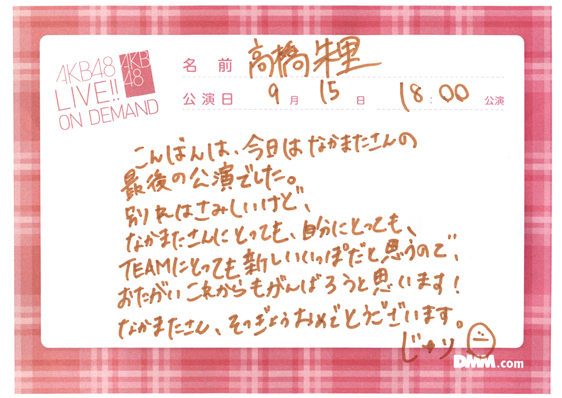 AKB48
LIVE!!
ON DEMAND
AKB
48
名 前 高橋朱里
公演日 9月 15日 18:00 公演
こんばんは、今日はなかまたさんの
最後の公演でした。
別れはさみしいけど、
なかまたさんにとっても、自分にとっても、
TEAMにとっても新しいいっぽだと思うので、
おたがいこれからもがんばろうと思います!
なかまたさん、そつぎょうおめでとうございます。
じゅり
DMM.com